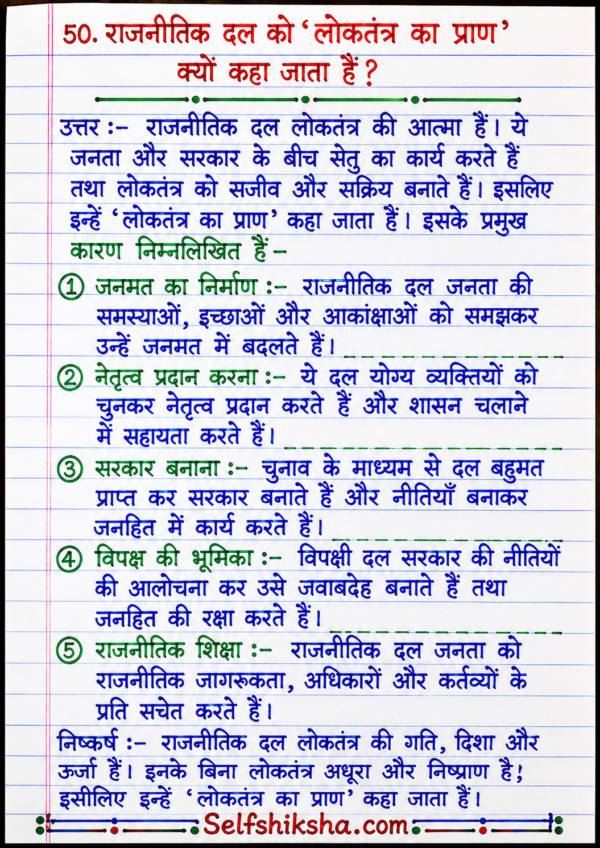 50. राजनीतिक दल को ‘लोकतंत्र का प्राण’
क्यों कहा जाता हैं?
उत्तर :– राजनीतिक दल लोकतंत्र की आत्मा हैं। ये
जनता और सरकार के बीच सेतु का कार्य करते हैं
तथा लोकतंत्र को सजीव और सक्रिय बनाते हैं। इसलिए
इन्हें ‘लोकतंत्र का प्राण’ कहा जाता हैं। इसके प्रमुख
कारण निम्नलिखित हैं –
① जनमत का निर्माण :– राजनीतिक दल जनता की
समस्याओं, इच्छाओं और आकांक्षाओं को समझकर
उन्हें जनमत में बदलते हैं।
② नेतृत्व प्रदान करना :– ये दल योग्य व्यक्तियों को
चुनकर नेतृत्व प्रदान करते हैं और शासन चलाने
में सहायता करते हैं।
③ सरकार बनाना :– चुनाव के माध्यम से दल बहुमत
प्राप्त कर सरकार बनाते हैं और नीतियाँ बनाकर
जनहित में कार्य करते हैं।
④ विपक्ष की भूमिका :– विपक्षी दल सरकार की नीतियों
की आलोचना कर उसे जवाबदेह बनाते हैं तथा
जनहित की रक्षा करते हैं।
⑤ राजनीतिक शिक्षा :– राजनीतिक दल जनता को
राजनीतिक जागरुकता, अधिकारों और कर्तव्यों के
प्रति सचेत करते हैं।
निष्कर्ष :– राजनीतिक दल लोकतंत्र की गति, दिशा और
ऊर्जा हैं। इनके बिना लोकतंत्र अधूरा और निष्प्राण है;
इसीलिए इन्हें ‘लोकतंत्र का प्राण’ कहा जाता हैं।
Selfshiksha.com